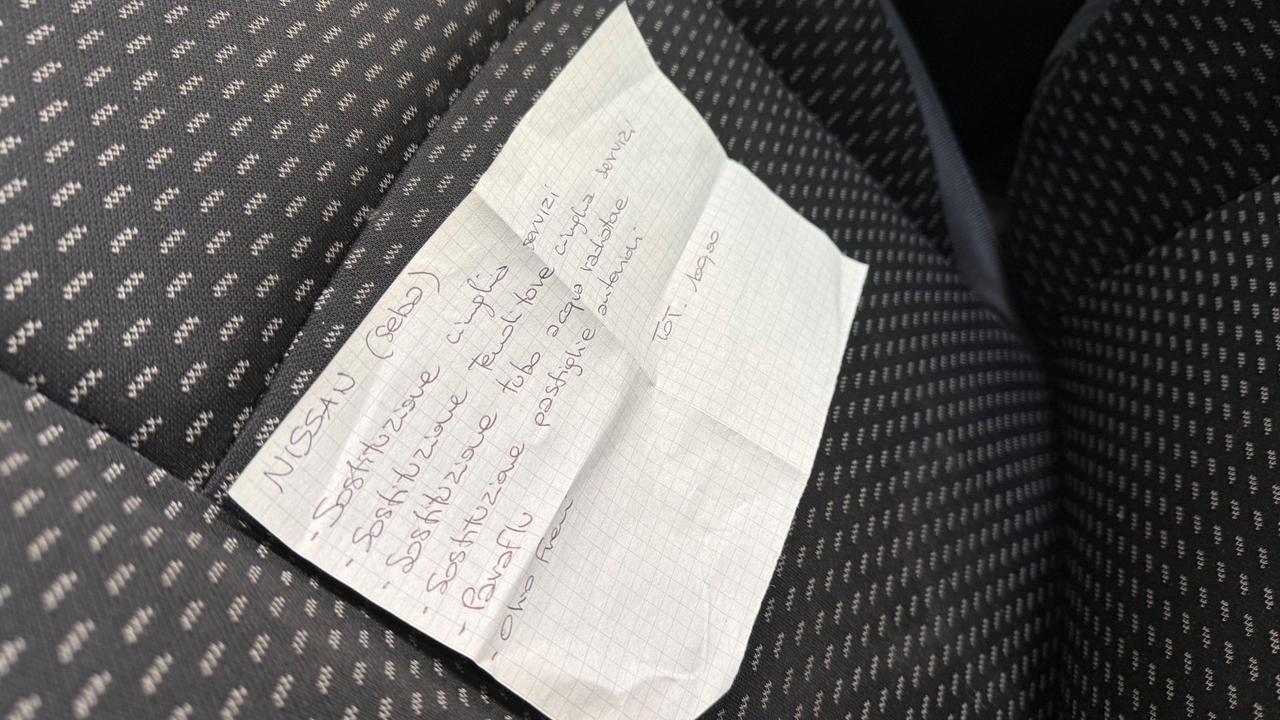 NISSAN (Sebo)
- Sostituzione cinghia servizi
- Sostituzione tenditore cinghia servizi
- Sostituzione tubo acqua radiatore
- Sostituzione pastiglie anteriori
- Paraflu
- Olio Freni
TOT.